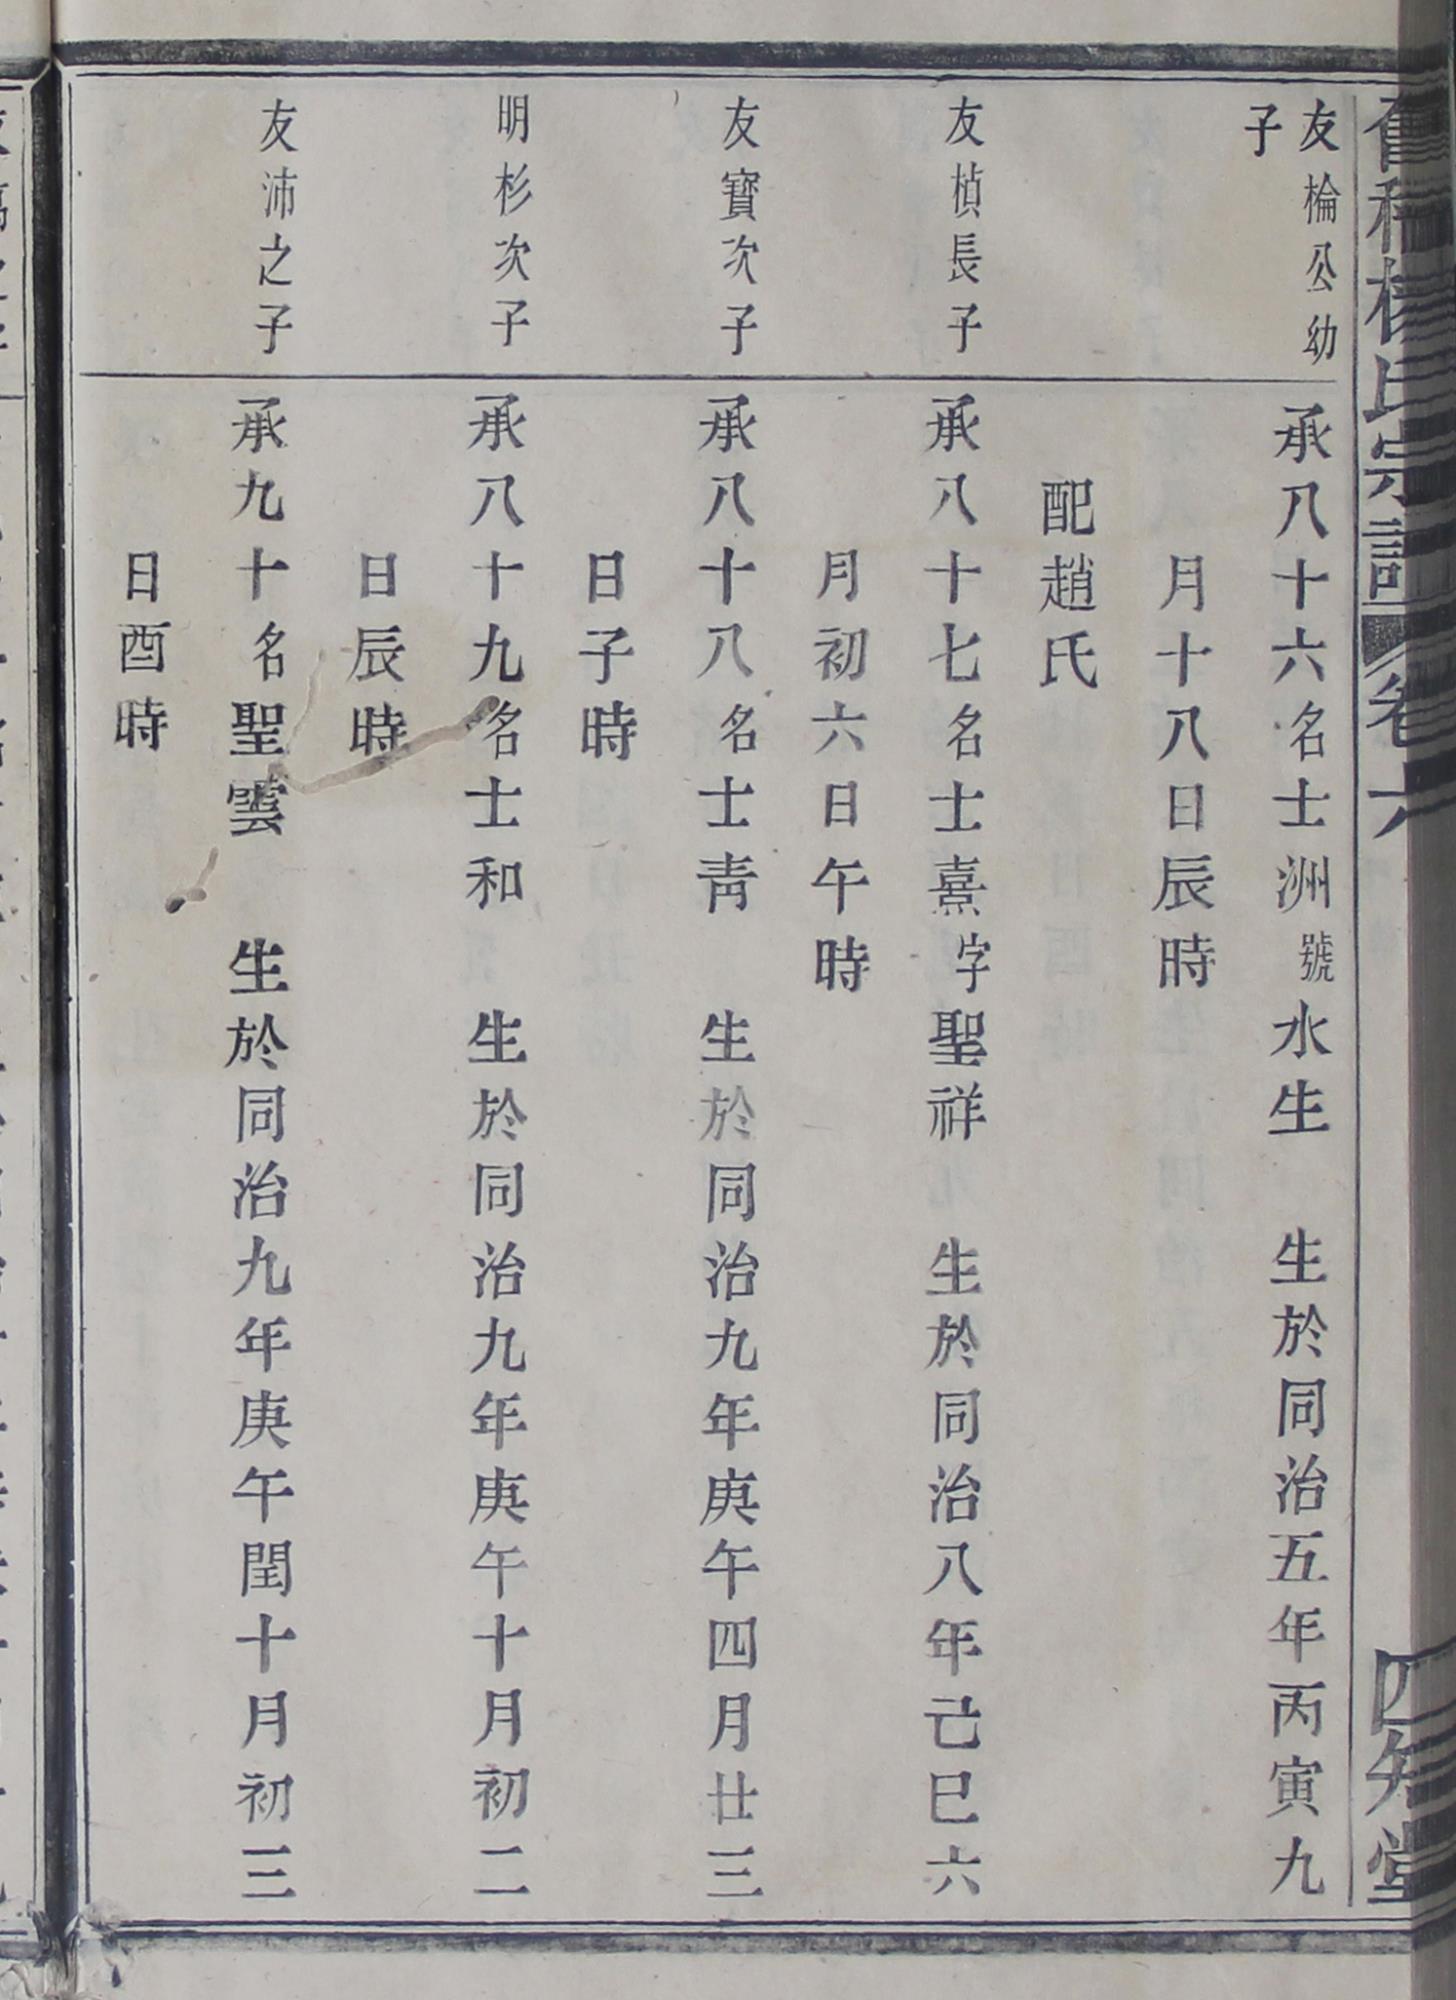 楊氏宗譜 卷六 四知堂
友棆公幼
子
承八十六名士洲號水生 生於同治五年丙寅九
月十八日辰時
配趙氏
友楨長子
承八十七名士熹字聖祥 生於同治八年己巳六
月初六日午時
友寶次子
承八十八名士靑 生於同治九年庚午四月廿三
日子時
明杉次子
承八十九名士和 生於同治九年庚午十月初二
日辰時
友沛之子
承九十名聖雲 生於同治九年庚午閏十月初三
日酉時